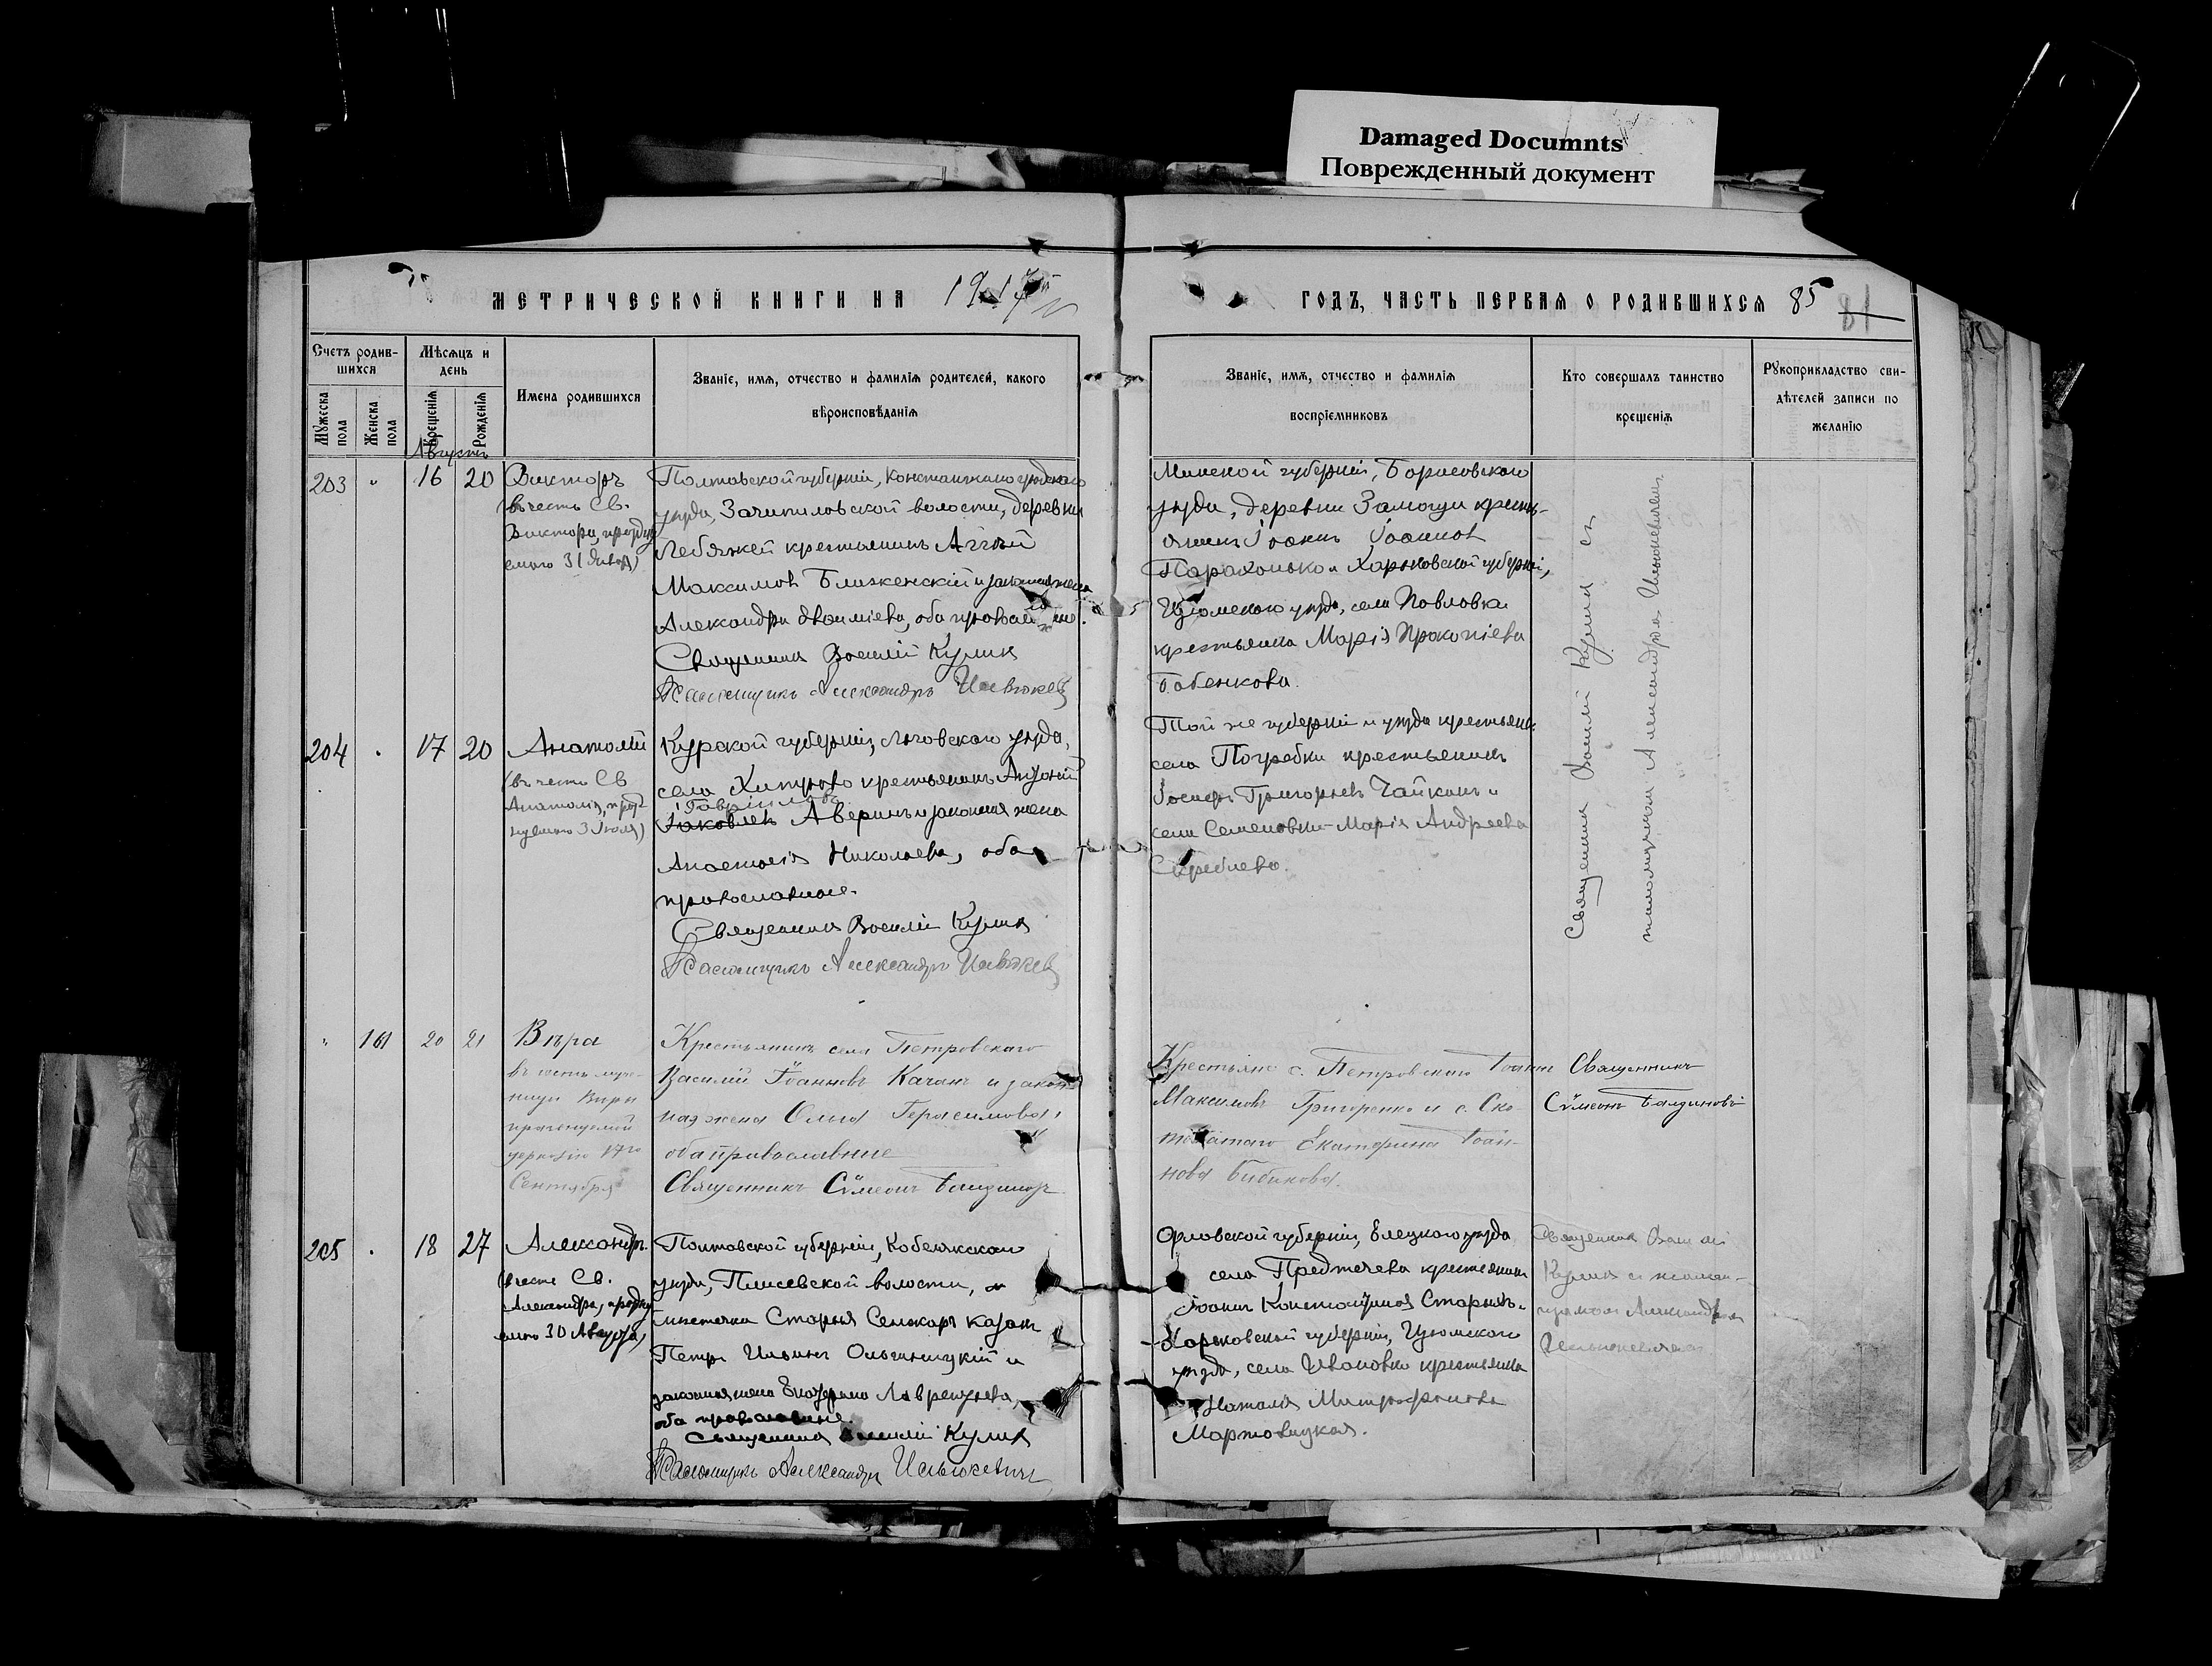 Damaged Documnts
Поврежденный документ
МЕТРИЧЕСКОЙ КНИГИ НА 1917
ГОДЪ, ЧАСТЬ ПЕРВАЯ О РОДИВШИХСЯ 85 81
Счетъ родив-
шихся
Мужеска пола
Женска пола
Мѣсяцъ и
день
Крещенія
Рожденія
Имена родившихся
Званіе, имя, отчество и фамилія родителей, какого
вѣроисповѣданія
Званіе, имя, отчество и фамилія
воспріемниковъ
Кто совершалъ таинство
крещенія
Рукоприкладство сви-
дѣтелей записи по
желанію
Августъ
203 " 16 20
Викторъ
(въ честь Св.
Виктора, праздну-
емаго 31 Янв.)
Полтавской губерніи, Константиноградскаго
уѣзда, Зачепиловской волости, деревни
Лебяжей крестьянинъ Аггей
Максимовъ Близженскій и законная жена
Александра, оба православные.
Священникъ Василій Куликъ
Псаломщикъ Александръ
Минской губерніи, Борисовскаго
уѣзда, деревни Замощи кресть-
янинъ Іоаннъ Іоанновъ
Харьковской губерніи,
Изюмскаго уѣзда, села Павловки
крестьянка Марія Прокопіева
Бабенкова.
Священникъ Василій Куликъ съ
псаломщикомъ Александромъ
204 " 17 20
Анатолій
(въ честь Св.
Анатолія, празд-
нуемаго 3 Іюля)
Курской губерніи, Льговскаго уѣзда,
села крестьянинъ
Гавріиловъ
Іаковлевъ Аверинъ и законная жена
Анастасія Николаева, оба
православные.
Священникъ Василій Куликъ
Псаломщикъ Александръ
Той же губерніи и уѣзда
села Погребки крестьянинъ
Іосифъ Григорьевъ Чайкинъ и
села Семеновки Марія Андреева
" 161 20 21
Вѣра
въ честь муче-
ницы Вѣры
празднуемой
церковію 17го
Сентября
Крестьянинъ села Петровскаго
Василій Іоанновъ Качанъ и закон-
ная жена Ольга Герасимова,
оба православные
Священникъ Сѵмеонъ
Крестьяне с. Петровскаго Іоаннъ
Максимовъ Григоренко и с.
Екатерина Іоан-
нова Бибикова.
Священникъ
Сѵмеонъ
205 " 18 27
Александръ
(въ честь Св.
Александра, праздну-
емаго 30 Августа)
Полтавской губерніи, Кобелякскаго
уѣзда, волости,
мѣстечка Старыя Сенжары казакъ
Петръ Ильинъ и
законная жена Екатерина Лаврентьева,
оба православные.
Священникъ Василій Куликъ
Псаломщикъ Александръ
Орловской губерніи, Елецкаго уѣзда
села Предтечева крестьянинъ
Іоаннъ Константиновъ
Харьковской губерніи, Изюмскаго
уѣзда, села Ивановки крестьянка
Наталія Митрофанова
Мартовицкая.
Священникъ Василій
Куликъ съ псалом-
щикомъ Александромъ